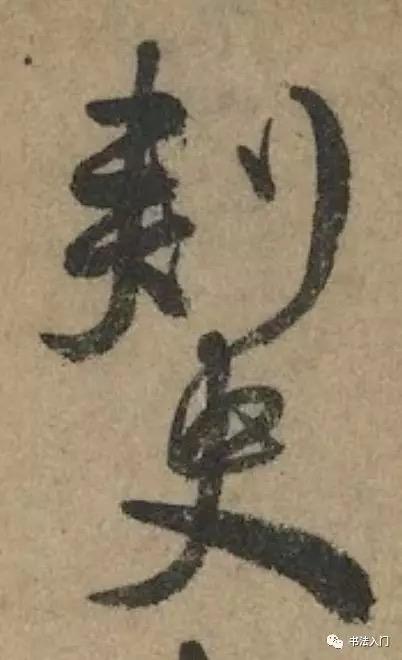 刺史
书法入门